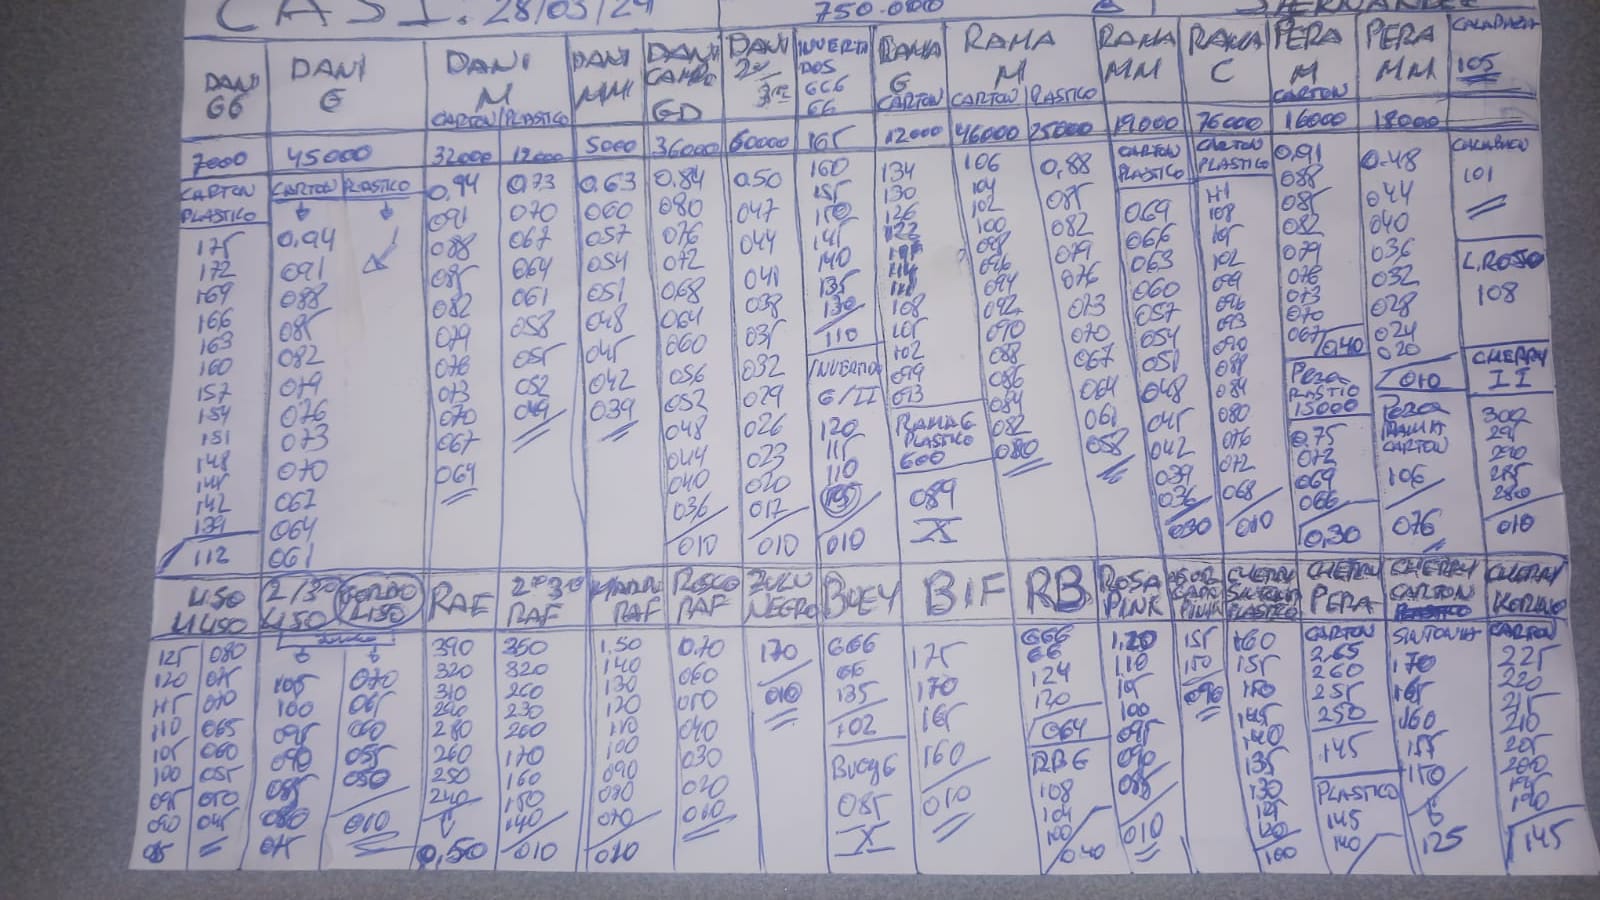 CASI. 28/03/24
750.000
DANI GG
DANI G
DANI M
CARTON PLASTICO
DANI MM
DANI CANARIO GD
DANI 2ª 3ª
INVERTIDOS GGG GG
RAMA G CARTON
RAMA M
CARTON PLASTICO
RAMA MM
RAMA C
PERA M CARTON
PERA MM
CALABAZA
105
7000
45000
32000
12000
5000
36000
60000
165
12000
46000
25000
19000
76000
16000
18000
CARTON PLASTICO
175
172
169
166
163
160
157
154
151
148
145
142
139
112
CARTON PLASTICO
0,94
091
088
085
082
079
076
073
070
067
064
061
0,94
091
088
085
082
079
076
073
070
067
064
0,73
070
067
064
061
058
055
052
049
0,63
060
057
054
051
048
045
042
039
0,84
080
076
072
068
064
060
056
052
048
044
040
036
010
0,50
047
044
041
038
035
032
029
026
023
020
017
010
160
155
150
145
140
135
130
110
INVERTIDO G/II
120
115
110
105
010
134
130
126
122
108
105
102
099
093
RAMA G PLASTICO
600
089
X
106
104
102
100
098
096
094
092
090
088
086
084
082
080
0,88
085
082
079
076
073
070
067
064
061
058
CARTON PLASTICO
069
066
063
060
057
054
051
048
045
042
039
036
030
CARTON PLASTICO
111
108
105
102
099
096
093
090
088
084
080
076
072
068
010
0,91
088
085
082
079
076
073
070
067
0,40
PERA PLASTICO
15000
0,75
072
069
066
0,30
0,48
044
040
036
032
028
024
020
010
PERA
CARTON
106
076
101
L. ROJO
108
CHERRY II
300
295
290
285
280
010
LISO
125
120
115
110
105
100
095
090
085
080
075
070
065
060
055
050
045
2/3ª LISO
105
100
095
090
085
080
075
GORDO LISO
070
065
060
055
050
010
RAF
390
320
310
290
280
260
250
240
0,50
2ª 3ª RAF
350
320
260
230
200
170
160
150
140
010
RAF
1,50
140
130
120
110
100
090
080
070
010
ROSCO RAF
0,70
060
050
040
030
020
010
ZULU NEGRO
170
010
BUEY
GGG
GG
135
102
BUEY G
085
X
BIF
175
170
165
160
010
RB
GGG
GG
124
120
064
RB G
108
104
100
040
ROSA PINK
1,20
110
105
100
095
090
085
010
155
150
090
CHERRY SINTONIA PLASTICO
160
155
150
145
140
135
130
125
120
100
CHERRY PERA
CARTON
265
260
255
250
145
PLASTICO
145
140
CHERRY CARTON
SINTONIA
170
165
160
155
150
125
CHERRY KORINO
CARTON
225
220
215
210
205
200
195
190
145